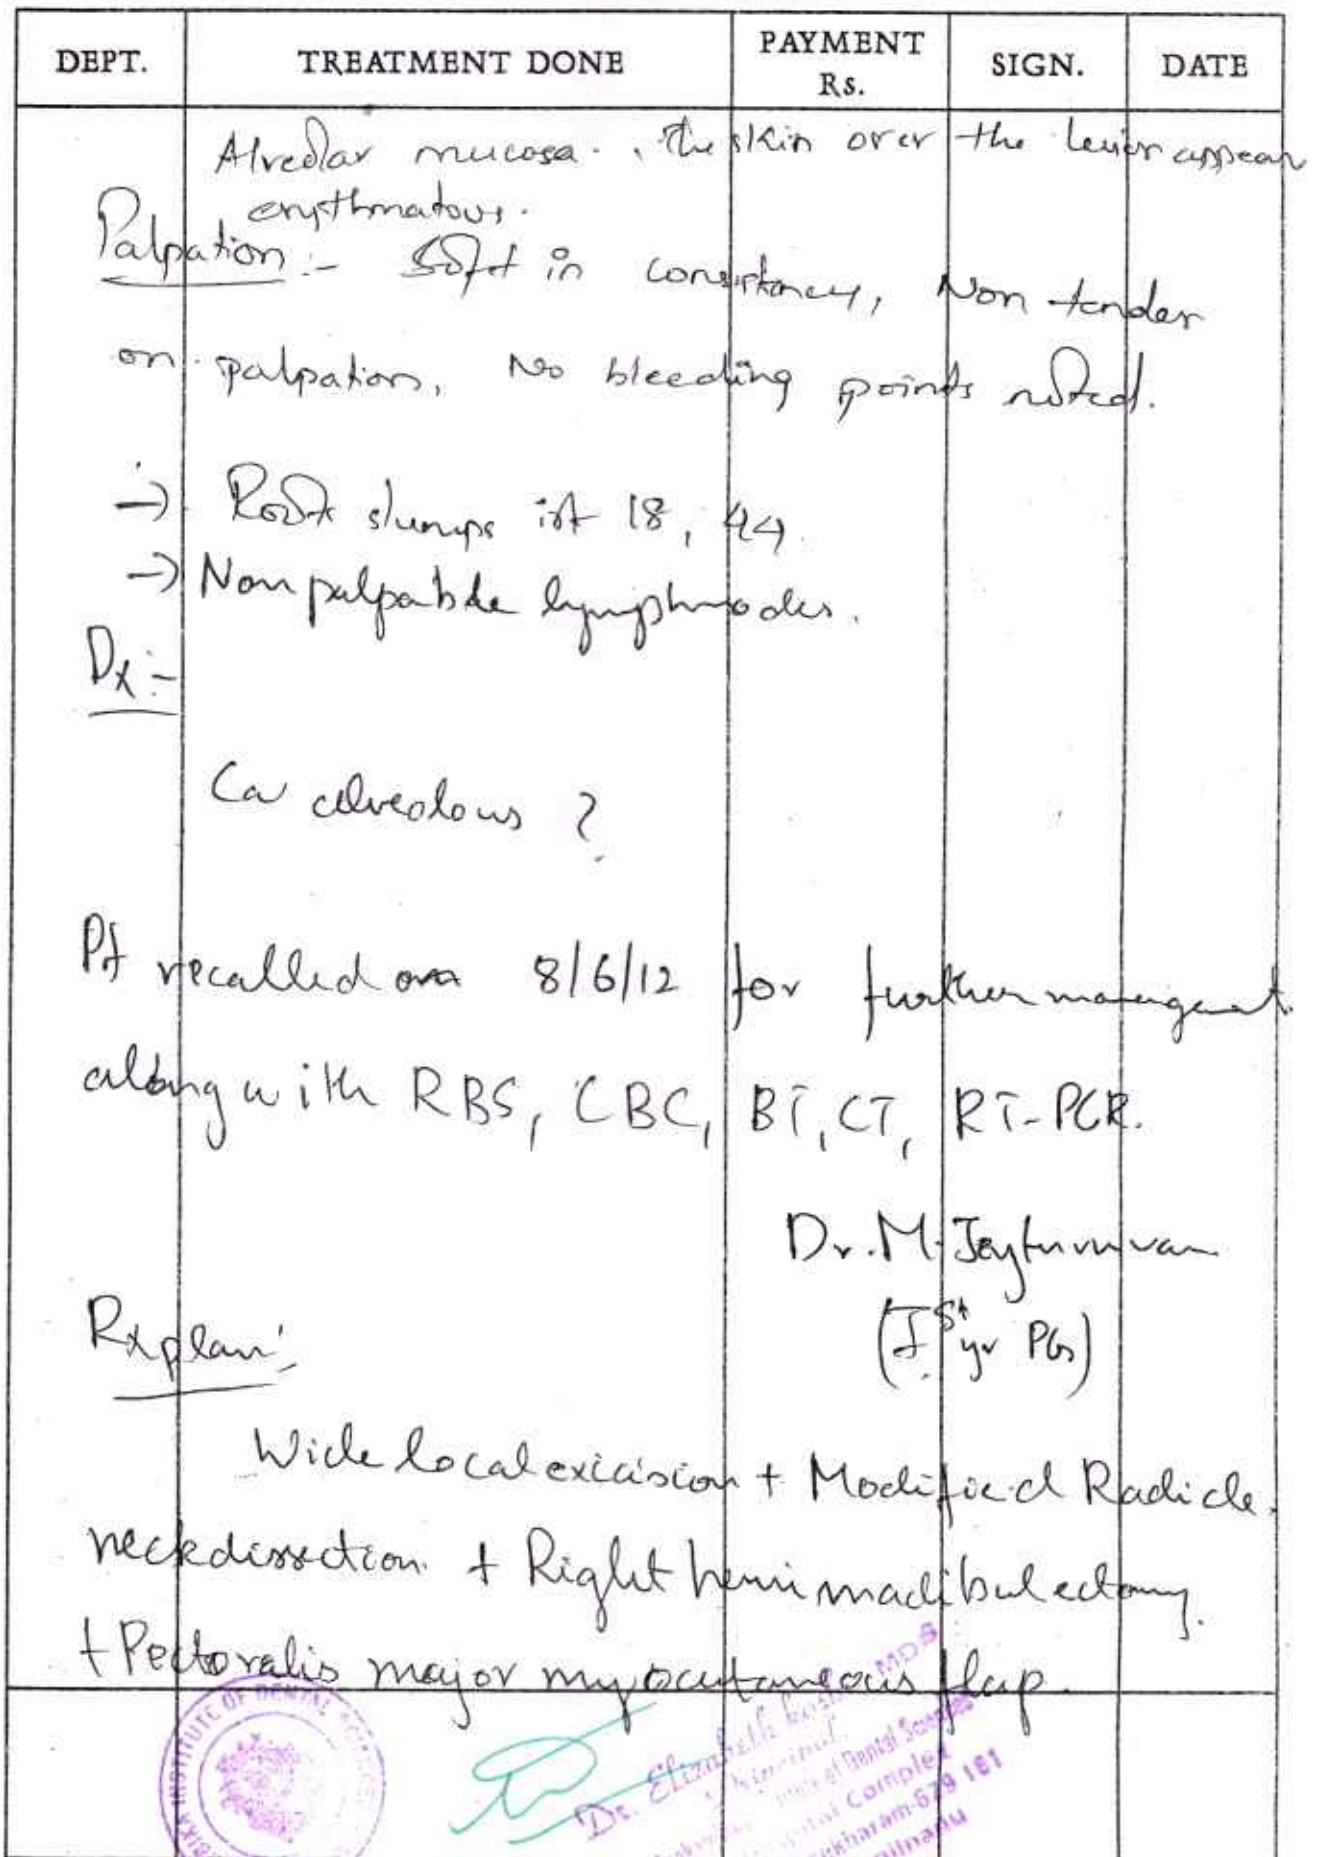 DEPT. TREATMENT DONE PAYMENT Rs. SIGN. DATE
Alveolar mucosa. The skin over the lesion appear
erythmatous.
Palpation :- Soft in consistancy, Non tender
on palpation, No bleeding points noted.
→ Root stumps irt 18, 44.
→ Non palpable lymphnodes.
Dx :-
Ca alveolous ?
Pt recalled on 8/6/12 for further management
along with RBS, CBC, BT, CT, RT-PCR.
Dr. M.
(Ist yr PG)
Rx plan:
Wide local exicision + Modified Radicle
neck dissection + Right hemimadibulectomy.
+ Pectoralis major myocutaneous flap.
INSTITUTE OF DENTAL SCIENCES
Dr. Elizabeth MDS
Principal
of Dental Sciences
Complex
629 161